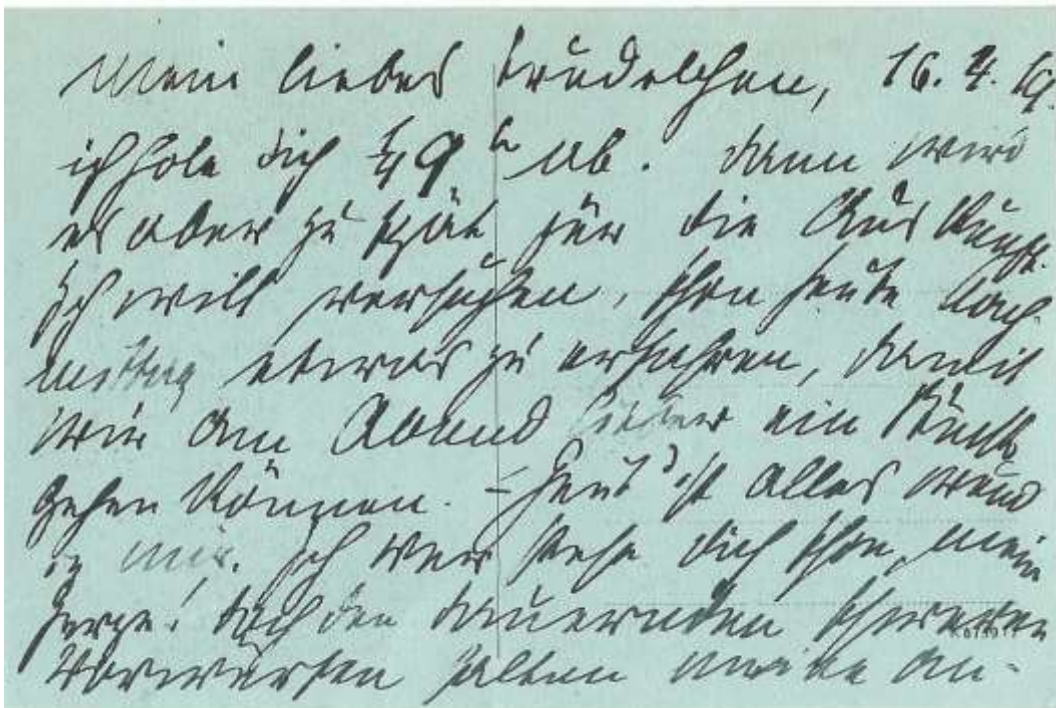 Mein liebes Trudelchen, 16. 4. 19.
ich hole dich ¼9 h ab. Dann wird
es aber zu spät für die Auskunft.
Ich will versuchen, schon heute Nach-
mittag etwas zu erfahren, damit
wir am Abend lieber ein Stück
gehen können. – Heut' ist alles wund
in mir. Ich verstehe dich schon, mein
Herze! Doch den dauernden schweren
Vorwürfen halten meine an-